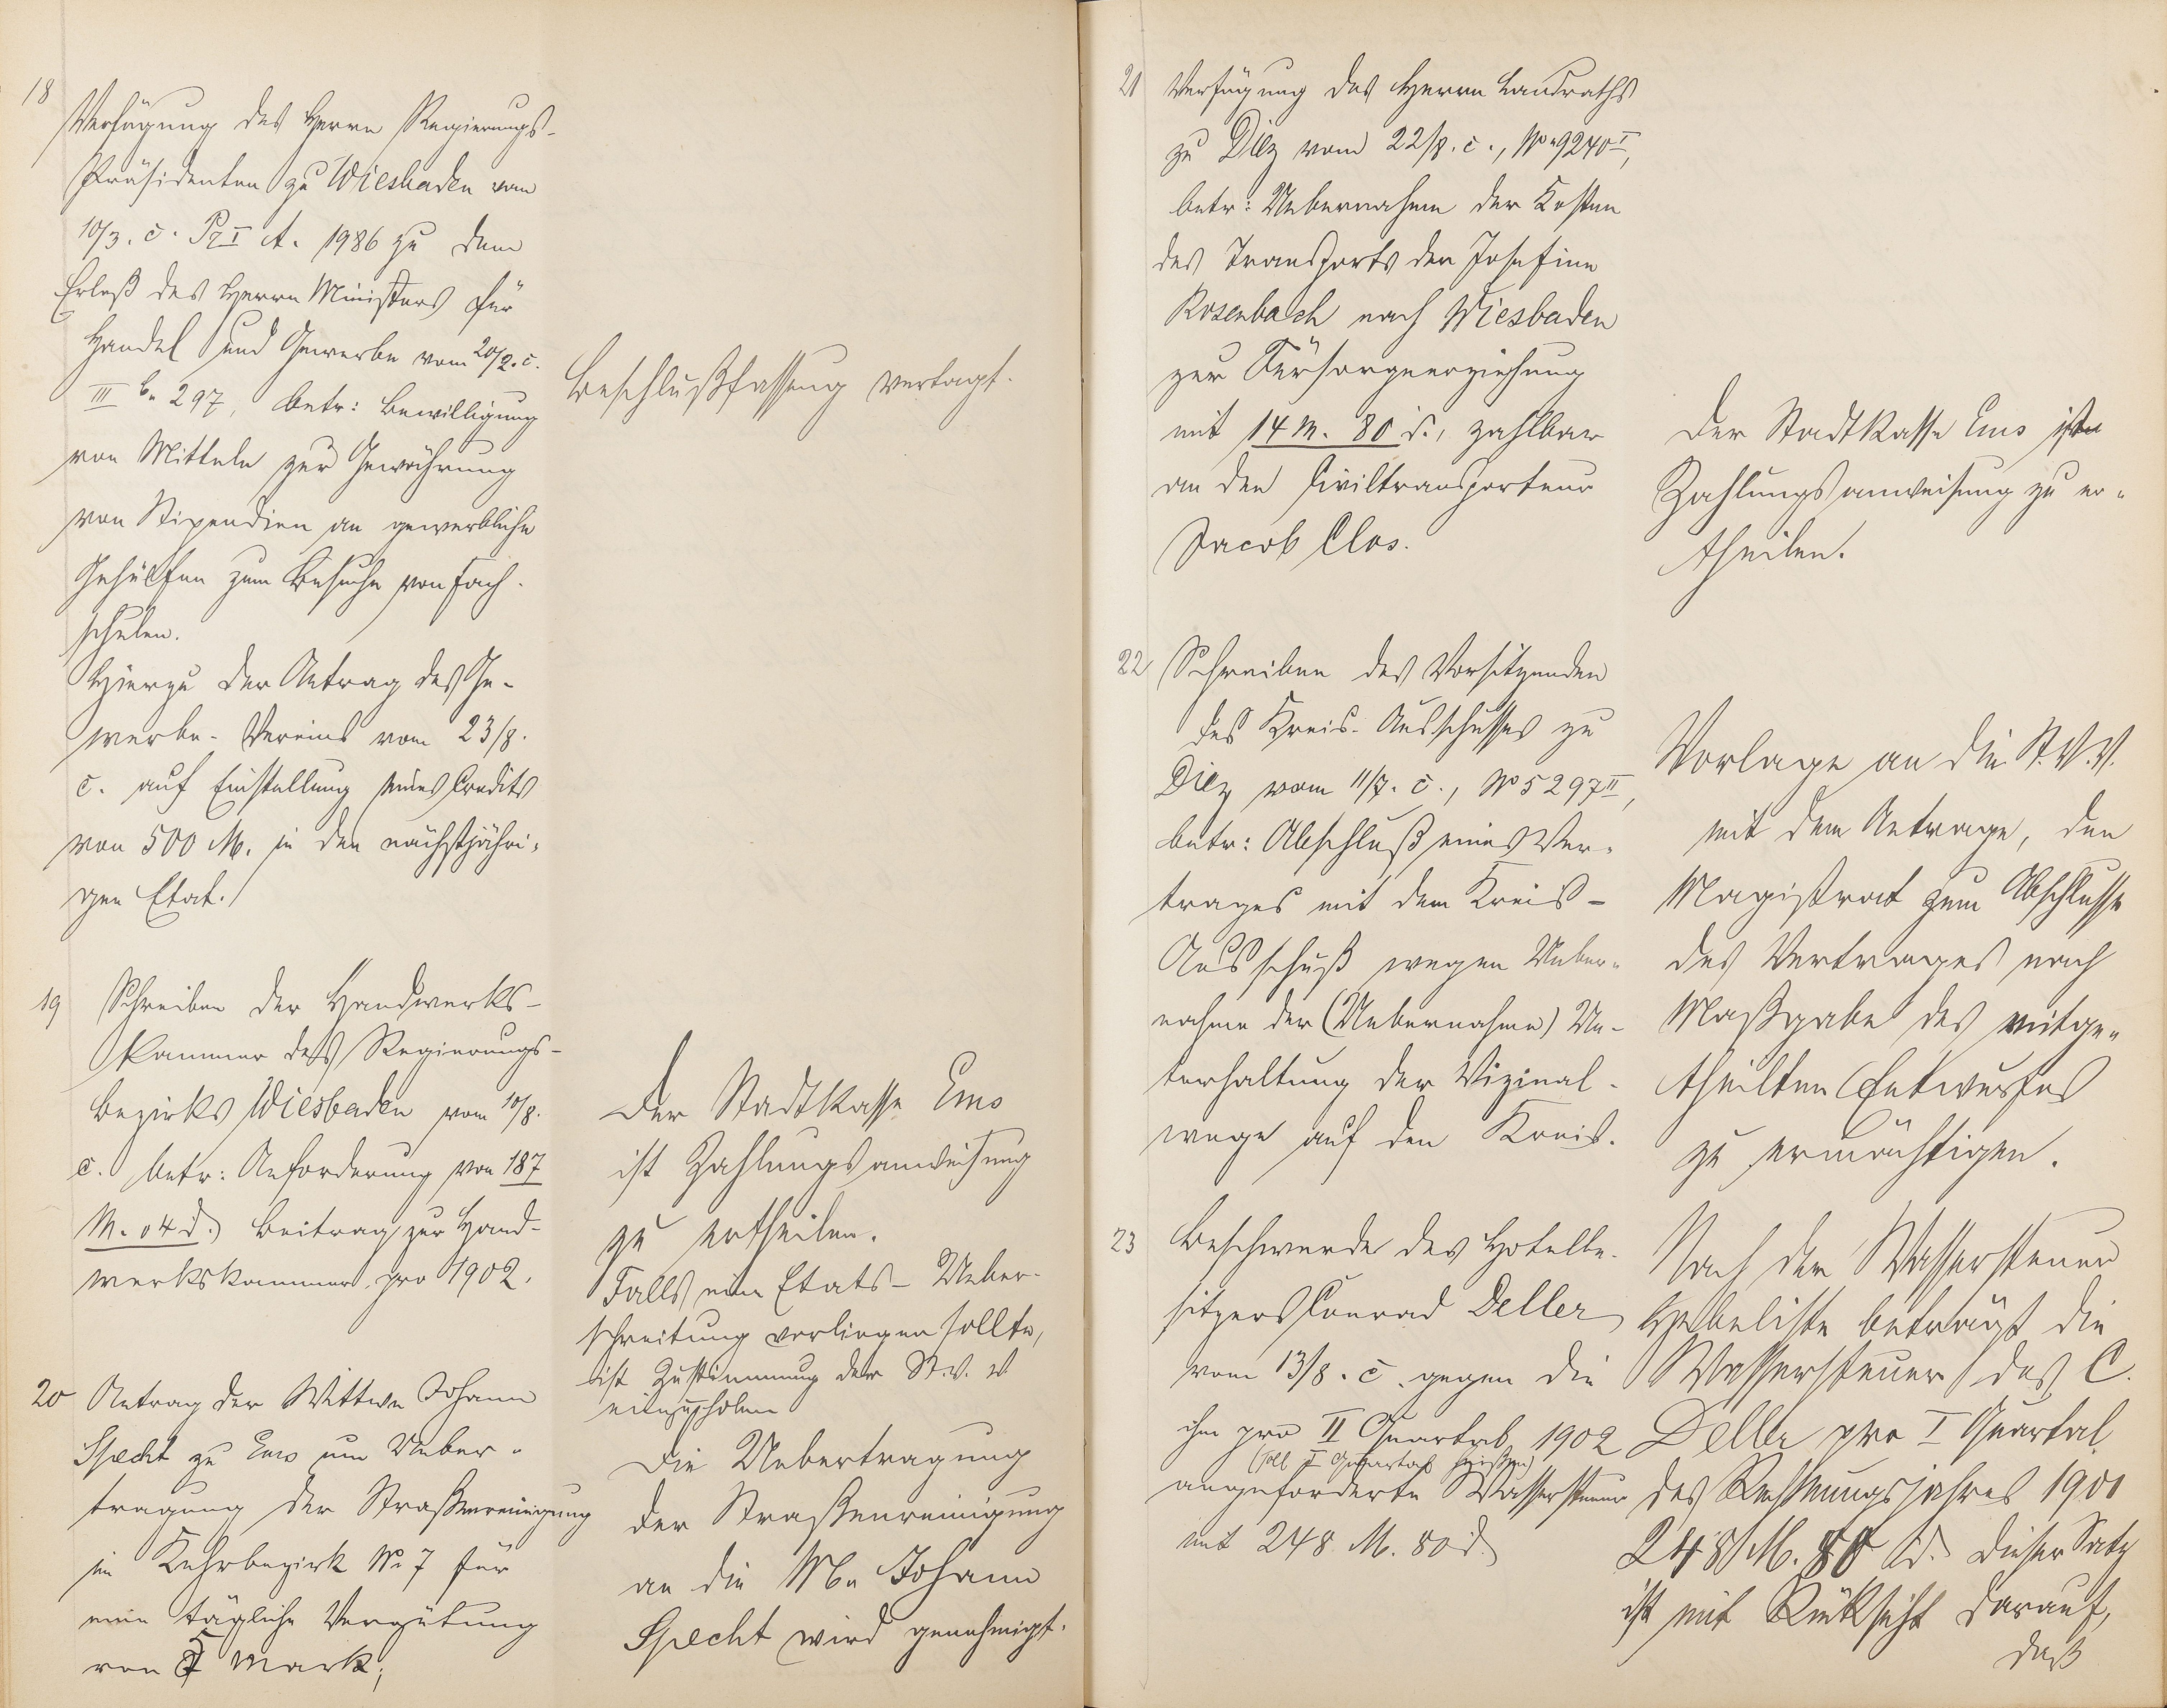 18
Verfügung des Herrn Regierungs-
Präsidenten zu Wiesbaden vom
10/3. c. Pr I A. 1986 zu dem
Erlaß des Herrn Ministers für
Handel und Gewerbe vom 20/2. c.
III b. 297, betr: Bewilligung
von Mitteln zur Gewährung
von Stipendien an gewerbliche
Gehülfen zum Besuche von Fach-
schulen.
Hierzu der Antrag des Ge-
werbe-Vereins vom 23/8.
c. auf Einstellung eines Credits
von 500 M. in den nächstjähri-
gen Etat.
Beschlußfassung vertagt.
19 Schreiben der Handwerks-
kammer des Regierungs-
bezirks Wiesbaden vom 10/8.
c. betr: Anforderung von 187
M. 04 d. Beitrag zur Hand-
werkskammer pro 1902.
Der Stadtkasse Ems
ist Zahlungsanweisung
zu ertheilen.
Falls eine Etats-Ueber-
schreitung vorliegen sollte,
ist Zustimmung der St.V.V
einzuholen
20 Antrag der Wittwe Johann
Specht zu Ems um Ueber-
tragung der Straßenreinigung
im Kehrbezirk No 7 für
eine tägliche Vergütung
von Mark;
Die Uebertragung
der Straßenreinigung
an die Johann
Specht wird genehmigt.
21 Verfügung des Herrn Landraths
zu Diez vom 22/8. c., No 9240 I,
betr: Uebernahme der Kosten
des Transports der Josefine
Rosenbach nach Wiesbaden
zur Fürsorgeerziehung
mit 14 M. 80 d., zahlbar
an den Civiltransporteur
Jacob Clos.
Der Stadtkasse Ems ist
Zahlungsanweisung zu er-
theilen.
22 Schreiben des Vorsitzenden
des Kreis-Ausschusses zu
Diez vom 11/7. c., No 5297 II,
betr: Abschluß eines Ver-
trages mit dem Kreis-
Ausschuß wegen Ueber-
nahme der (Uebernahme) Un-
terhaltung der Vizinal-
wege auf den Kreis.
Vorlage an die St.V.V.
mit dem Antrage, den
Magistrat zum Abschlusse
des Vertrages nach
Maßgabe des mitge-
theilten Entwurfes
zu ermächtigen.
23 Beschwerde des Hotelbe-
sitzers Conrad Deller
vom 13/8. c. gegen die
ihm pro II Quartal 1902
(soll I Quartal heißen)
angeforderte Wassersteuer
mit 248 M. 80 d.
Nach der Wassersteuer
Hebeliste beträgt die
Wassersteuer des C.
Deller pro I Quartal
des Rechnungsjahres 1901
248 M. 80 d. Dieser Satz
ist mit Rücksicht darauf,
daß